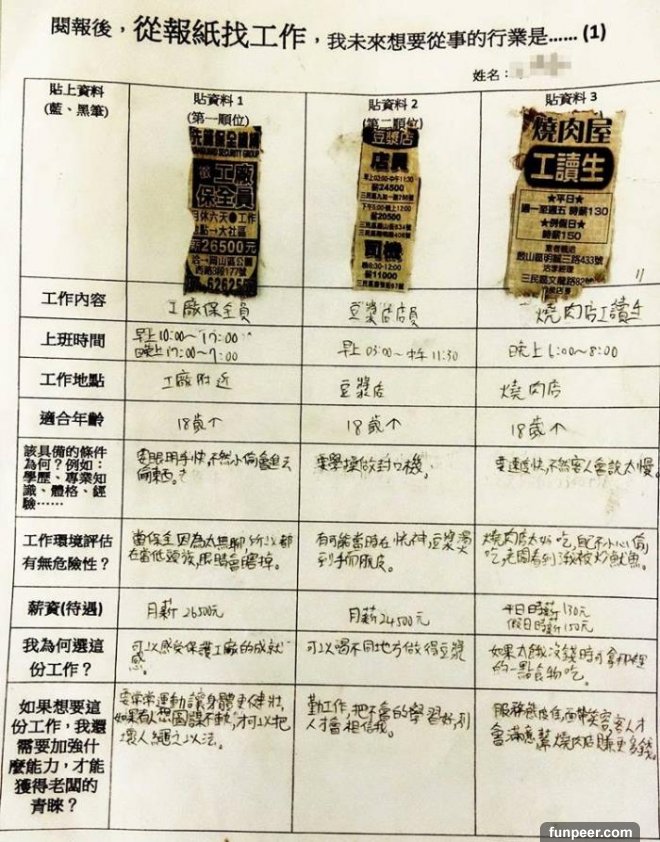 閱報後，從報紙找工作，我未來想要從事的行業是……(1)
姓名：
貼上資料
(藍、黑筆)
貼資料 1
(第一順位)
貼資料 2
(第二順位)
貼資料 3
工廠
保全員
月休六天●工作
點→大社區
薪26500元
豆漿店
店員
早上03:00-中午11:30
薪24500
薪20500
司機
薪11000
燒肉屋
工讀生
★平日★
週一至週五 時薪130
★例假日★
時薪150
工作內容
工廠保全員
豆漿店店員
燒肉店工讀生
上班時間
早上10:00~17:00
晚上17:00~7:00
早上 03:00~中午11:30
晚上 6:00~8:00
工作地點
工廠附近
豆漿店
燒肉店
適合年齡
18歲个
18歲个
18歲个
該具備的條件
為何？例如：
學歷、專業知
識、體格、經
驗……
要眼明手快,不然小偷會進去
偷東西。
要學操做封口機。
要速度快,不然客人會說太慢。
工作環境評估
有無危險性？
當保全因為太無聊,所以都
在當低頭族,眼睛會瞎掉。
有可能當時在恍神,豆漿燙
到手而脫皮。
燒肉店太好吃,
吃,老闆看到
薪資(待遇)
月薪26500元
月薪24500元
平日時薪130元
假日時薪150元
我為何選這
份工作？
可以感受保護工廠的成就
感。
可以喝不同地方做得豆漿
如果太餓沒錢時可拿那裡
的一點食物吃。
如果想要這
份工作，我還
需要加強什
麼能力，才能
獲得老闆的
青睞？
要常常運動讓身體更健壯,
如果有人想圖謀不軌,才可以把
壞人繩之以法。
勤工作,把不會的學習好,別
人才會相信我。
服務態度佳,面帶笑容,客人才
會滿意,幫燒肉店賺更多錢。
funpeer.com